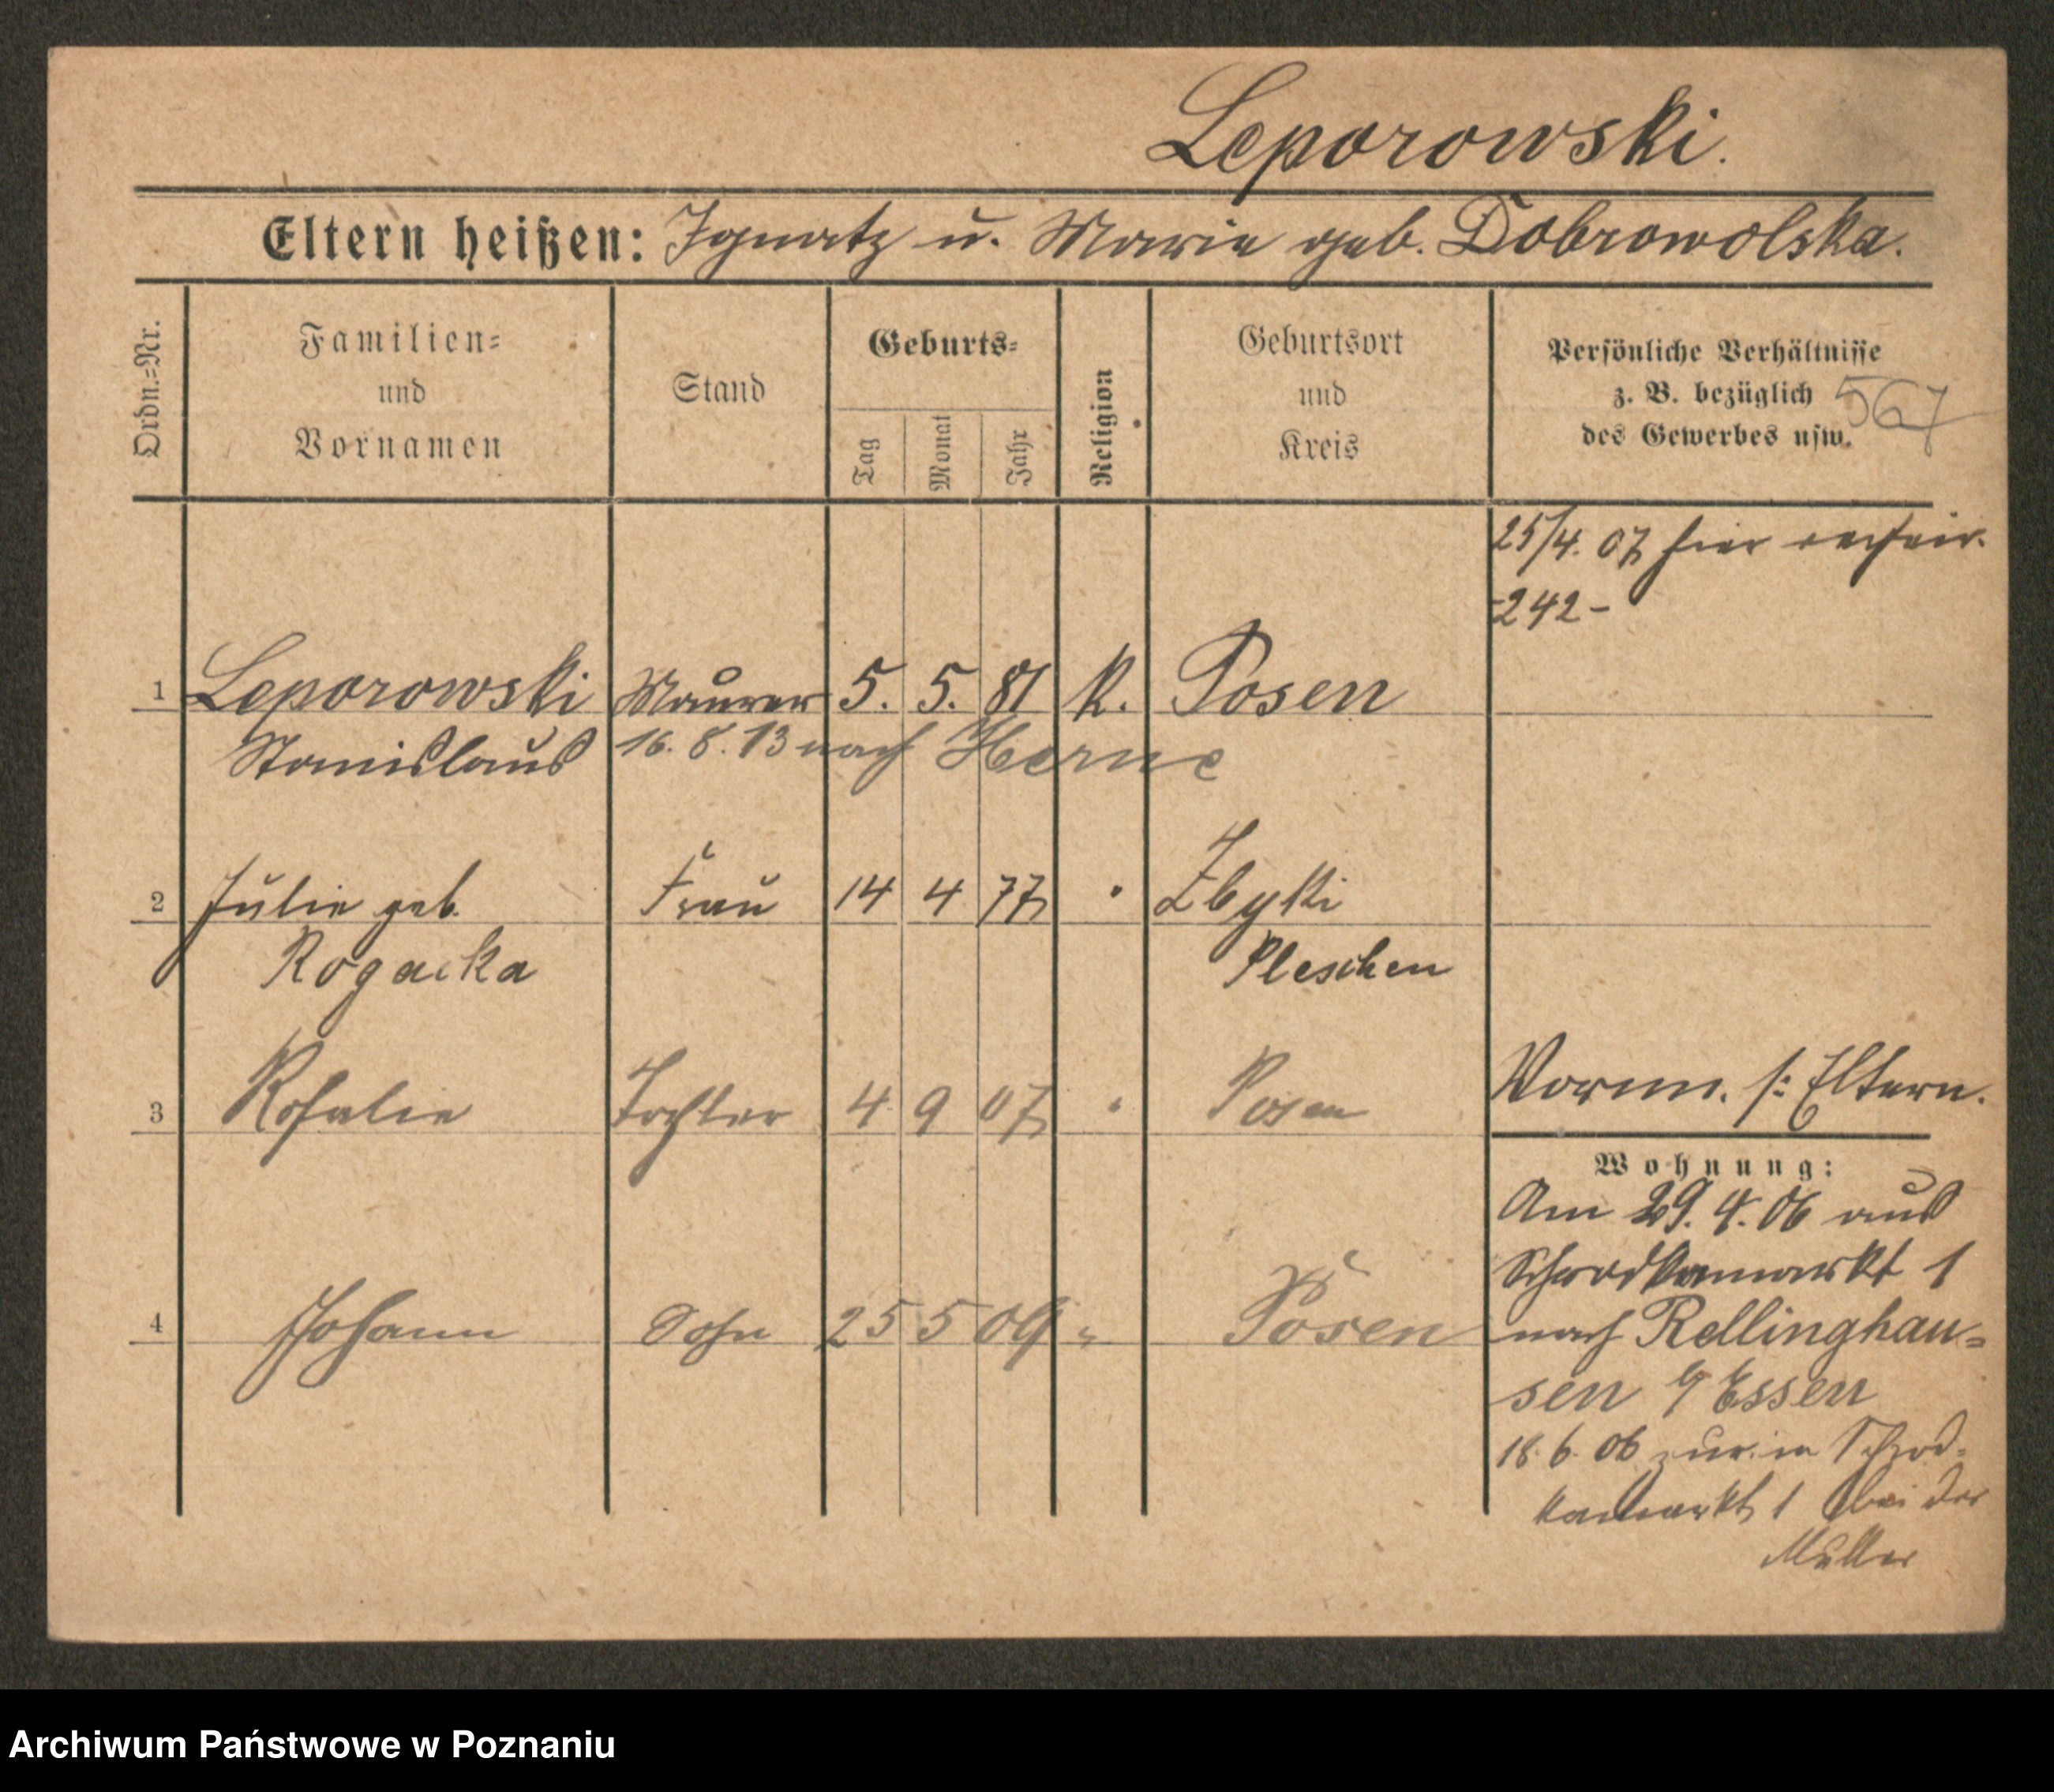 Leporowski.
Eltern heißen: Ignatz u. Marie geb. Dobrowolska.
Ordn.=Nr.
Familien=
und
Vornamen
Stand
Geburts=
Tag
Monat
Jahr
Religion
Geburtsort
und
Kreis
Persönliche Verhältnisse
z. B. bezüglich
des Gewerbes usw.
567
25/4. 07 hier
-242-
1 Leporowski Maurer 5. 5. 81 K. Posen
Stanislaus 16. 8. 13 nach Herne
2 Julie geb. Frau 14 4 77 " Zbyki
Rogacka Pleschen
3 Rosalie Tochter 4 9 07 " Posen
Vorm. s: Eltern.
4 Johann Sohn 25 5 09 " Posen
Wohnung:
Am 29. 4. 06 aus
Schrodkamarkt 1
nach Rellinghau=
sen b/ Essen
18. 6. 06 zur. in Schrod=
kamarkt 1 bei der
Mutter
Archiwum Państwowe w Poznaniu